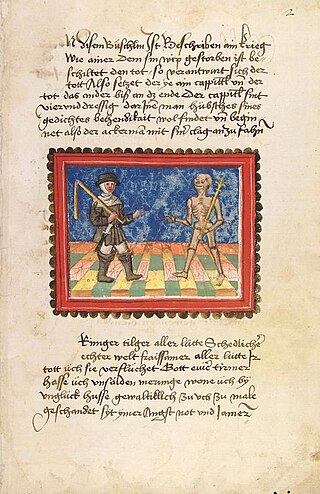 2
N disem Büchlin Ist Beschriben ain krieg
Wie ainer Dem sin wyp gestorben ist be
schiltet den tot so verantwurt sich der
tott Also setzet der ye ain cappittl vn der
tot das ander biß an dz ende Der cappittl sint
vier vnd dressig dar Ine man hübsches sines
gedichtes behendikait wol findet vn begin
net also der ackerman mit sinr clag an zu fahn
Rimiger tilger aller lüte Schedlicher
echter welt fraissamer aller lüte Ir
tott üch sie verflüchet Gott tirmer
hasse üch vnsälden merunge wone uch by
vnglück husse gewaltiklich zu uch zu male
geschandet syt ymer Angst not vnd Jamer